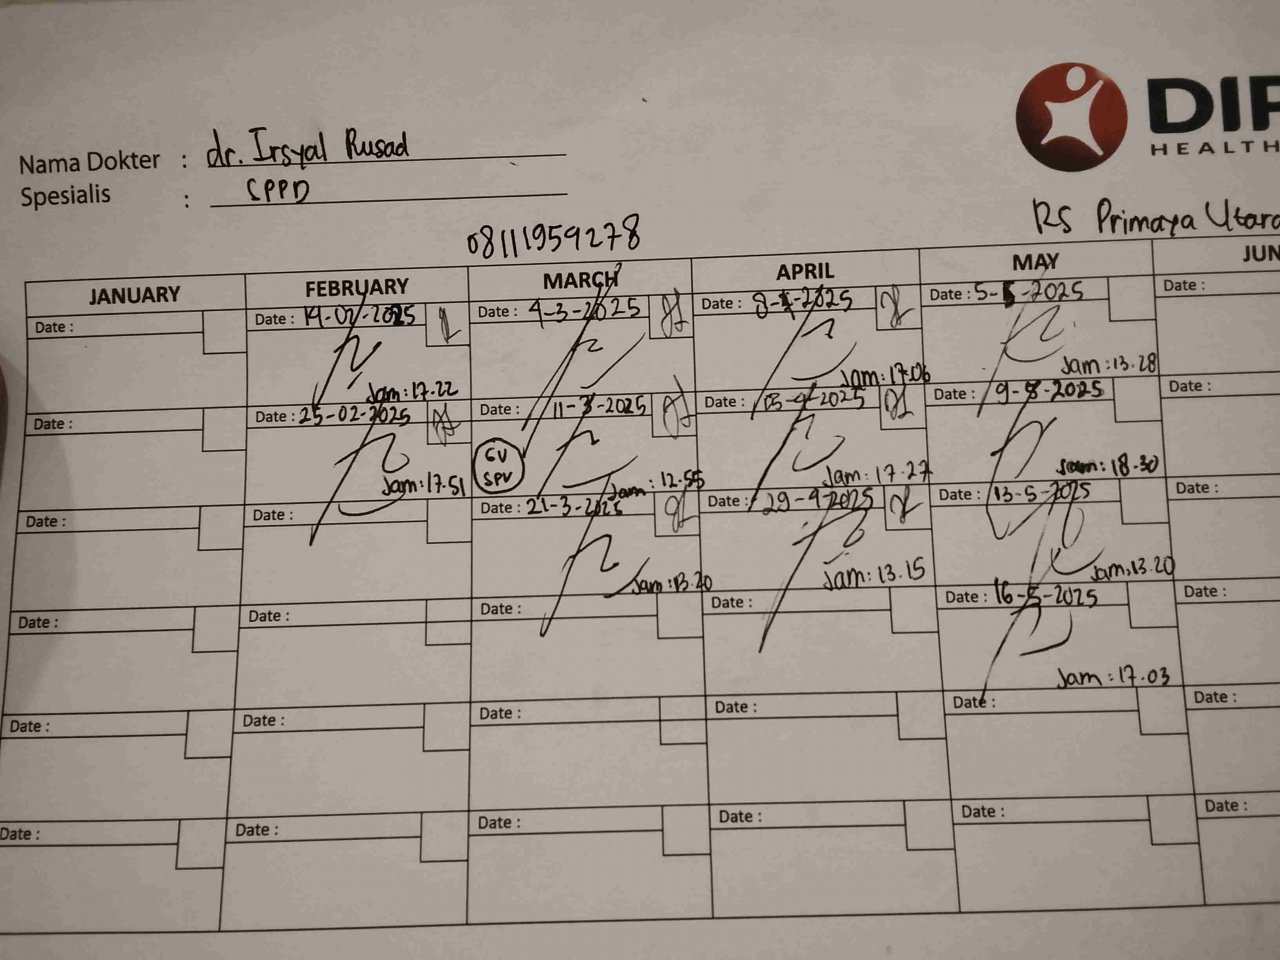 DIP
HEALTH
Nama Dokter : dr. Irsyal Rusad
Spesialis : SPPD
08111959278
RS Primaya Utara
JANUARY FEBRUARY MARCH APRIL MAY JUN
Date : Date : 14-02-2025 Date : 4-3-2025 Date : 8-4-2025 Date : 5-5-2025 Date :
Jam : 17.22 Jam : 17.06 Jam : 13.28
Date : Date : 25-02-2025 Date : 11-3-2025 Date : 2025 Date : 9-5-2025 Date :
GV
SPV
Jam : 17.51 Jam : 12.55 Jam : 17.27 Jam : 18.30
Date : Date : Date : 21-3-2025 Date : 29-4-2025 Date : 13-5-2025 Date :
Jam : 13.20 Jam : 13.15 Jam : 13.20
Date : Date : Date : Date : Date : 16-5-2025 Date :
Jam : 17.03
Date : Date : Date : Date : Date : Date :
Date : Date : Date : Date : Date : Date :